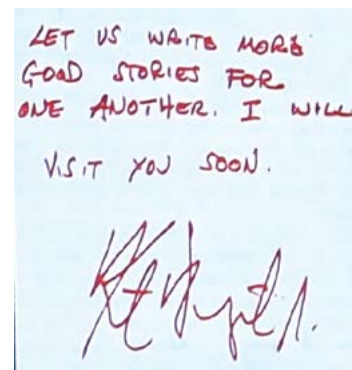 LET US WRITE MORE
GOOD STORIES FOR
ONE ANOTHER. I WILL
VISIT YOU SOON.